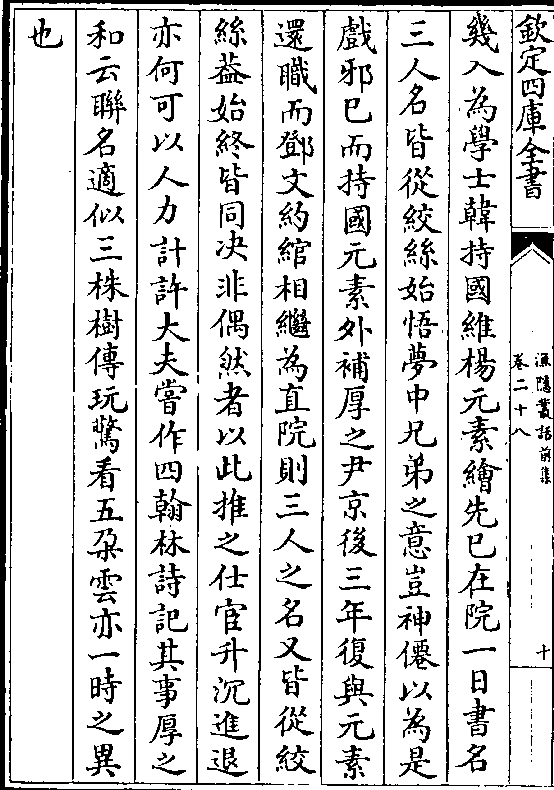 欽定四庫全書
漁隱叢話前集
卷二十八
十
幾入為學士韓持國維楊元素繪先已在院一日書名
三人名皆從絞絲始悟夢中兄弟之意豈神僊以為是
戲邪已而持國元素外補厚之尹京後三年復與元素
還職而鄧文約綰相繼為直院則三人之名又皆從絞
絲葢始終皆同决非偶然者以此推之仕宦升沉進退
亦何可以人力計許大夫嘗作四翰林詩記其事厚之
和云聯名適似三株樹傳玩驚看五朶雲亦一時之異
也